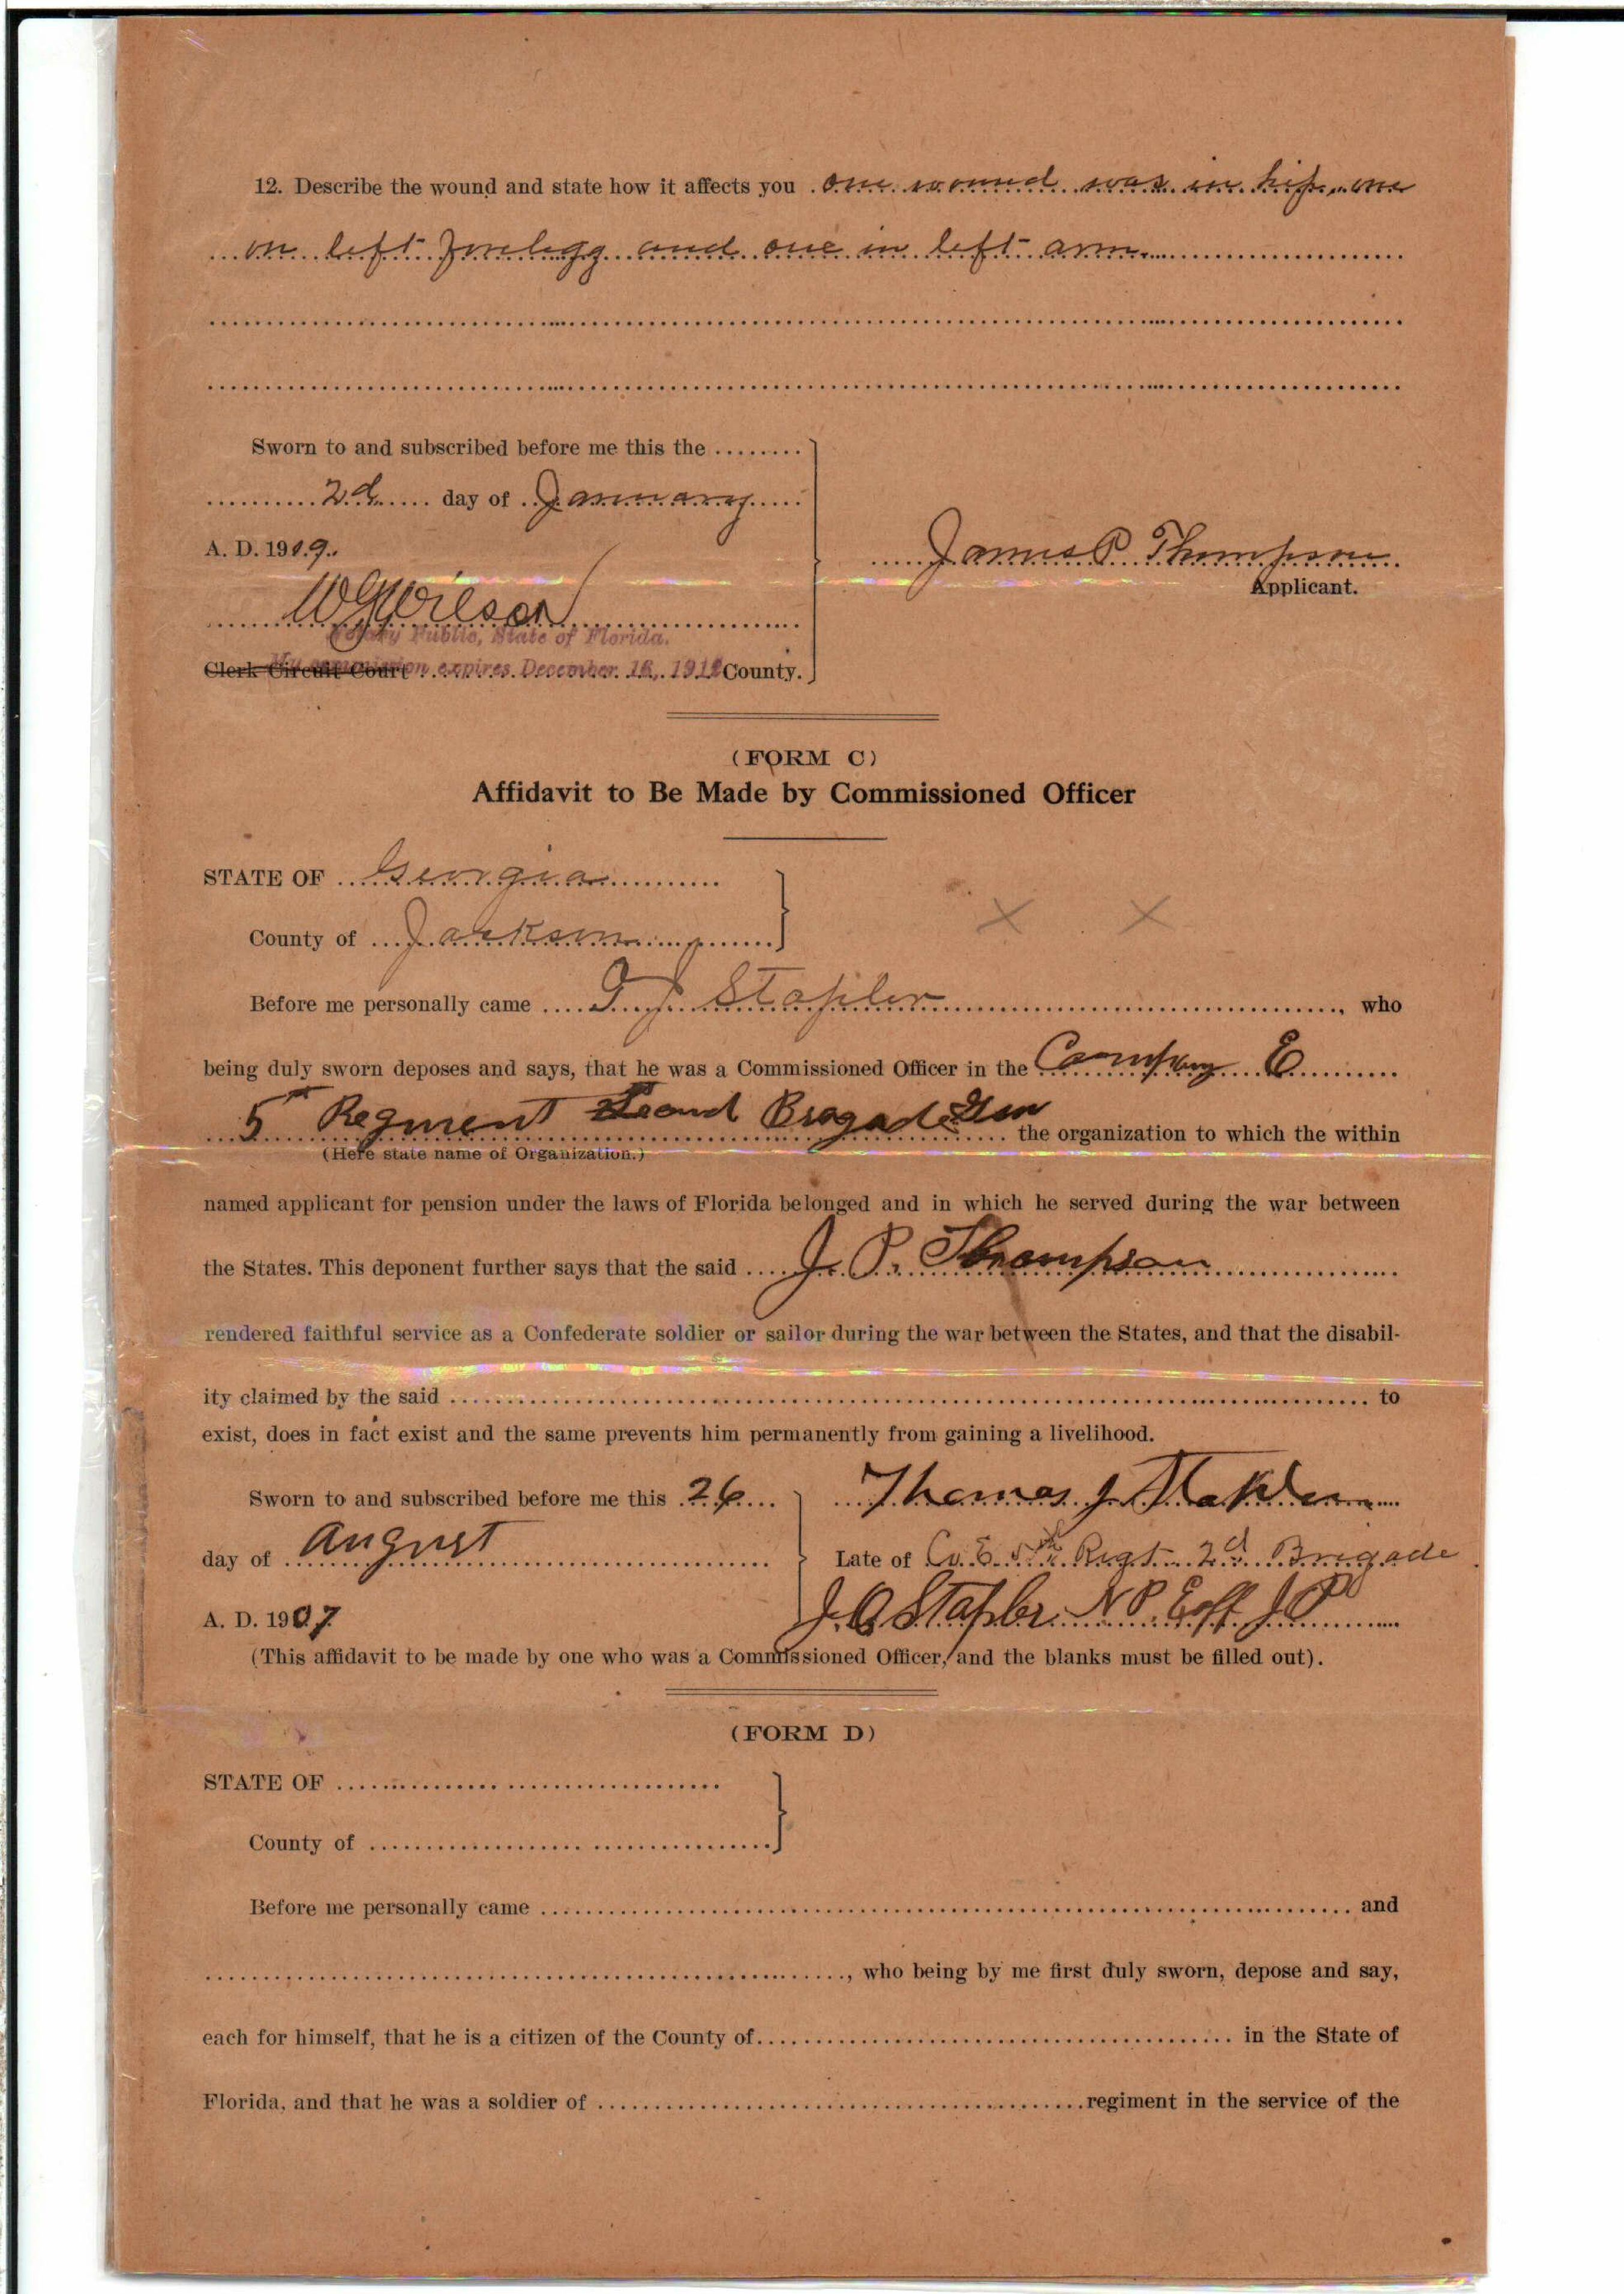 12. Describe the wound and state how it affects you one wound was in hip, one
on left forelegg and one in left arm
Sworn to and subscribed before me this the
2d day of January
A. D. 1909.
James P. Thompson
Applicant.
W G Wilson
Notary Public, State of Florida.
Clerk Circuit Court My commission expires December 16, 1912 County.
(FORM C)
Affidavit to Be Made by Commissioned Officer
STATE OF Georgia
County of Jackson
X X
Before me personally came T. J. Stapler, who
being duly sworn deposes and says, that he was a Commissioned Officer in the Company E
5 Regment Second Bragade the organization to which the within
(Here state name of Organization.)
named applicant for pension under the laws of Florida belonged and in which he served during the war between
the States. This deponent further says that the said J. P. Thompson
rendered faithful service as a Confederate soldier or sailor during the war between the States, and that the disabil-
ity claimed by the said to
exist, does in fact exist and the same prevents him permanently from gaining a livelihood.
Sworn to and subscribed before me this 26 Thomas J Stapler
day of August Late of Co. E. 5th Regt. 2d Brigade
A. D. 1907 Stapler N P
(This affidavit to be made by one who was a Commissioned Officer, and the blanks must be filled out).
(FORM D)
STATE OF
County of
Before me personally came and
, who being by me first duly sworn, depose and say,
each for himself, that he is a citizen of the County of in the State of
Florida, and that he was a soldier of regiment in the service of the